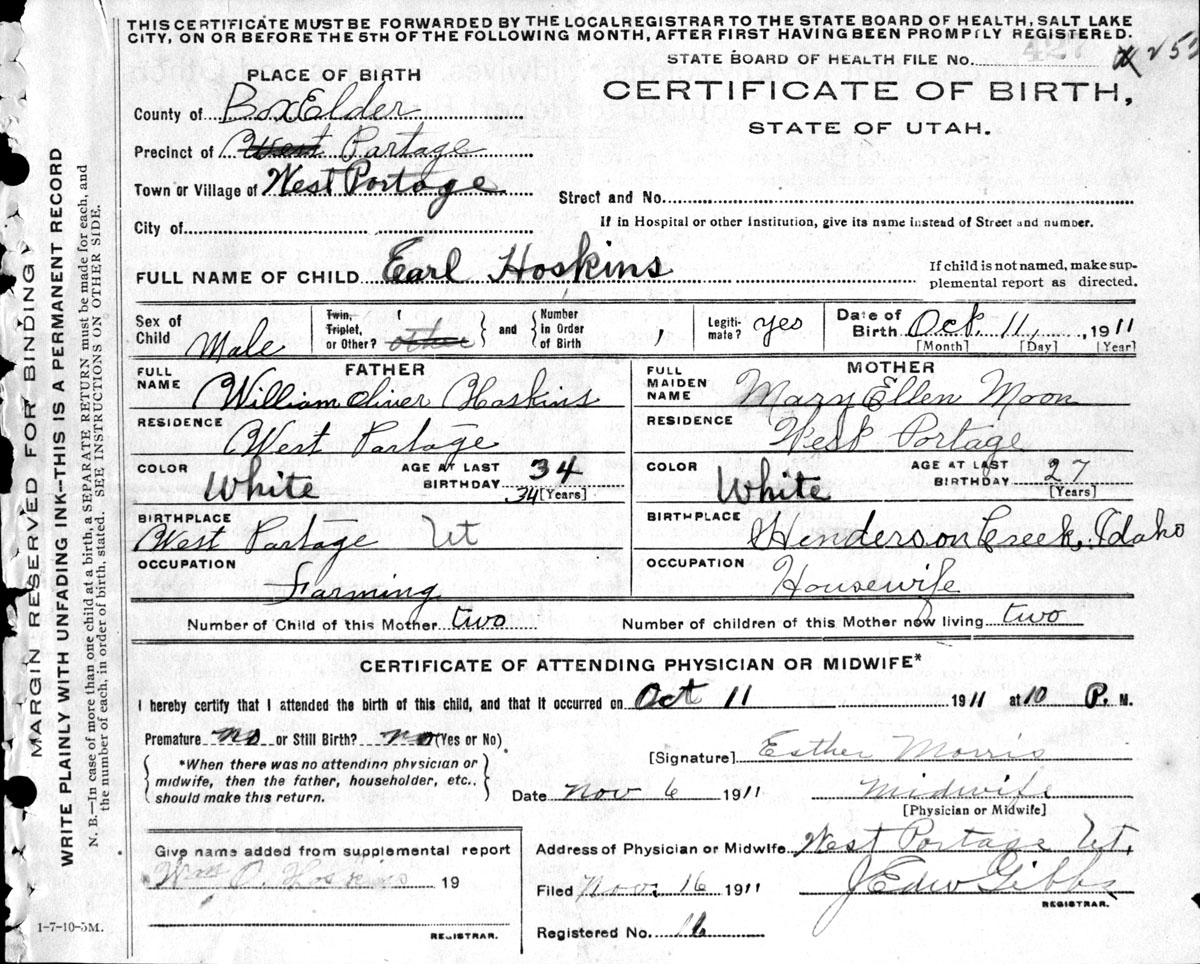 THIS CERTIFICATE MUST BE FORWARDED BY THE LOCAL REGISTRAR TO THE STATE BOARD OF HEALTH, SALT LAKE
CITY, ON OR BEFORE THE 5TH OF THE FOLLOWING MONTH, AFTER FIRST HAVING BEEN PROMPTLY REGISTERED.
STATE BOARD OF HEALTH FILE No.
PLACE OF BIRTH
CERTIFICATE OF BIRTH,
STATE OF UTAH.
County of Box Elder
Precinct of West Portage
Town or Village of West Portage
Street and No.
If in Hospital or other Institution, give its name instead of Street and number.
City of
FULL NAME OF CHILD Earl Hoskins
If child is not named, make sup-
plemental report as directed.
Sex of Child Male
Twin, Triplet, or Other? other and Number in Order of Birth 1
Legiti-mate? yes
Date of Birth Oct. 11, 1911
[Month] [Day] [Year]
FATHER
FULL NAME William Oliver Hoskins
RESIDENCE West Portage
COLOR White
AGE AT LAST BIRTHDAY 34
34 [Years]
BIRTHPLACE West Portage Ut
OCCUPATION Farming
MOTHER
FULL MAIDEN NAME Mary Ellen Moon
RESIDENCE West Portage
COLOR White
AGE AT LAST BIRTHDAY 27
[Years]
BIRTHPLACE Henderson Creek, Idaho
OCCUPATION Housewife
Number of Child of this Mother two
Number of children of this Mother now living two
CERTIFICATE OF ATTENDING PHYSICIAN OR MIDWIFE*
I hereby certify that I attended the birth of this child, and that it occurred on Oct 11 1911 at 10 P. M.
Premature no or Still Birth? no (Yes or No)
*When there was no attending physician or
midwife, then the father, householder, etc.,
should make this return.
[Signature] Esther Morris
Date Nov 6 1911
Midwife
[Physician or Midwife]
Give name added from supplemental report
Wm O. Hoskins 19
REGISTRAR.
Address of Physician or Midwife West Portage Ut.
Filed Nov. 16 1911
J Edw Gibbs
REGISTRAR.
Registered No. 16
1-7-10-5M.
MARGIN RESERVED FOR BINDING
WRITE PLAINLY WITH UNFADING INK--THIS IS A PERMANENT RECORD
N. B.—In case of more than one child at a birth, a SEPARATE RETURN must be made for each, and
the number of each, in order of birth, stated. SEE INSTRUCTIONS ON OTHER SIDE.